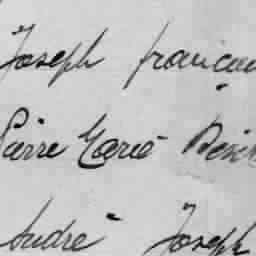 Joseph françai
Pierre Marie
André Joseph